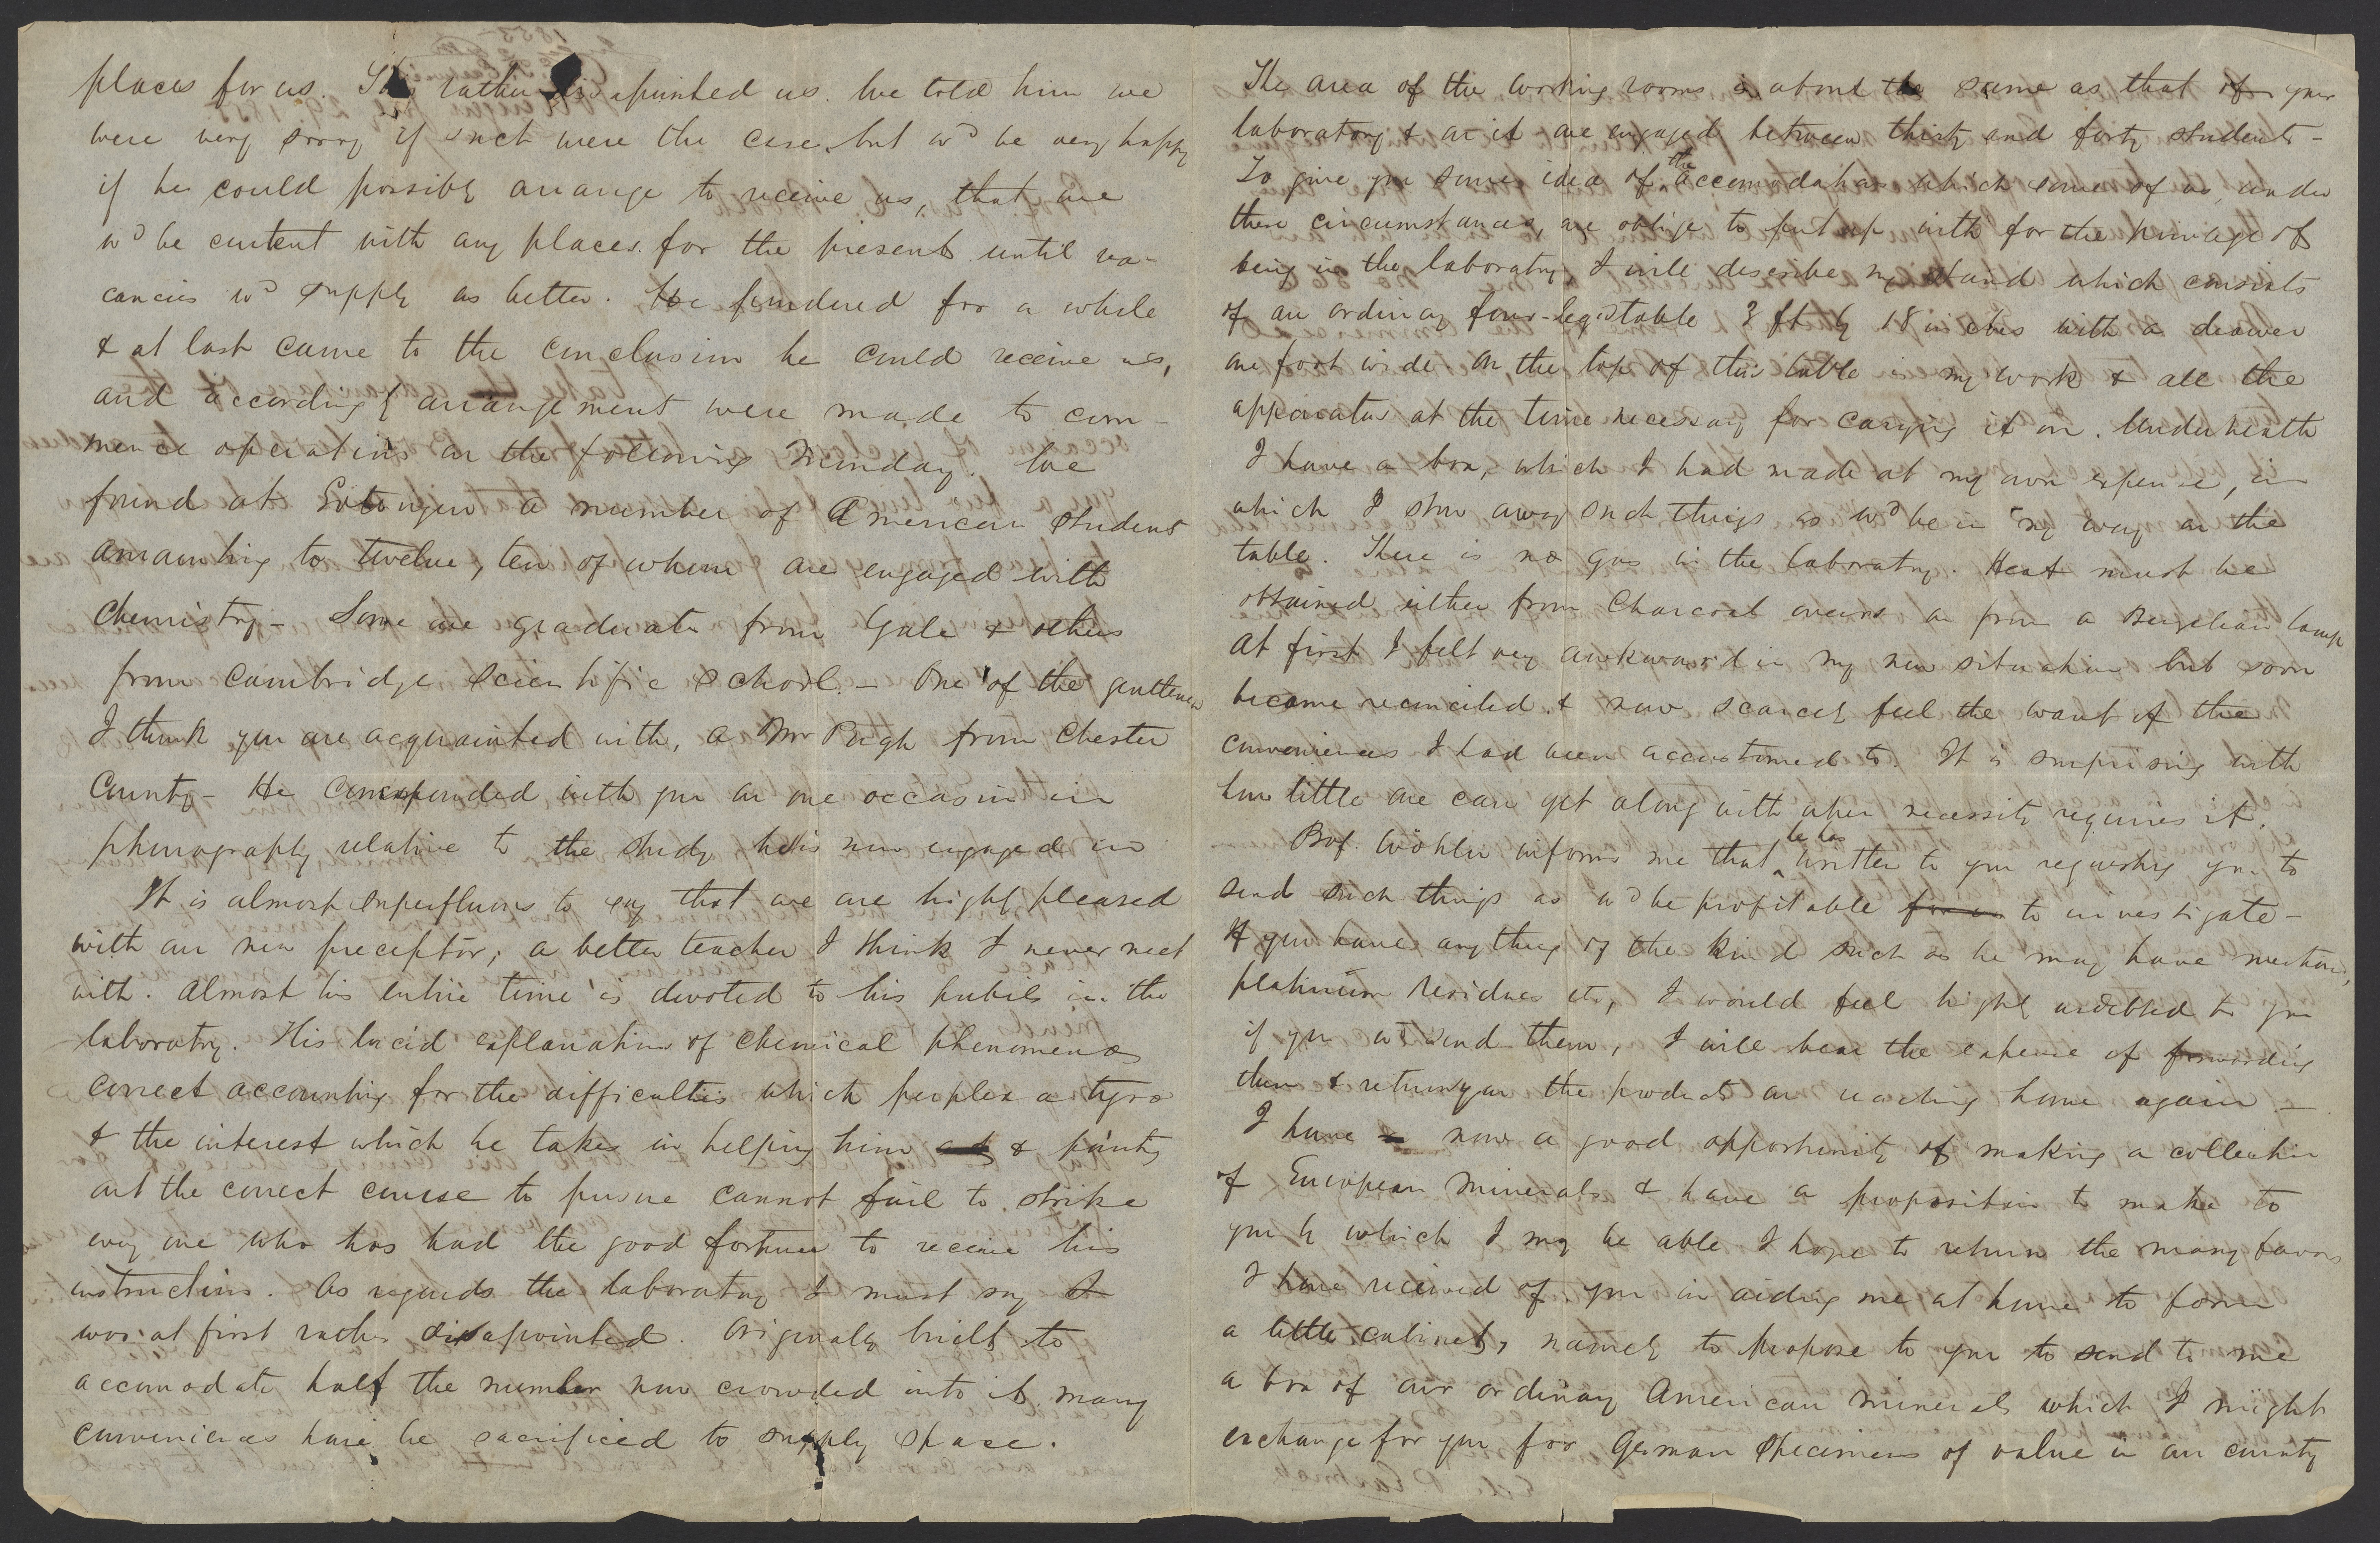 places for us. This rather disapointed us. We told him we
were very sorry if such were the case, but wd be very happy
if he could possibly arrange to receive us, that we
wd be content with any places for the present until va-
cancies wd supply us better. He pondered for a while
& at last came to the conclusion he could receive us,
and accordingly arrangement were made to com-
mence operations on the following Monday. We
found at Gottingen a number of American students
amounting to twelve, ten of whom are engaged with
Chemistry - Some are graduates from Yale & others
from Cambridge Scientific School. - One of the gentlemen
I think you are acquainted with, a Mr Pugh from Chester
County - He corresponded with you on one occasion in
phonography relative to the study he is now engaged in
It is almost superfluous to say that we are highly pleased
with our new preceptor; a better teacher I think I never met
with. Almost his entire time is devoted to his pupils in the
laboratory. His lucid explanation of Chemical phenomena
correct accounting for the difficulties which perplex a tyro
& the interest which he takes in helping him & pointing
out the correct course to pursue cannot fail to strike
every one who has had the good fortune to receive his
instructions. As regards the laboratory I must say I
was at first rather disapointed. Originaly built to
accomodate half the number now crowded into it many
conveniences have be sacrificed to supply space.
The area of the working rooms is about the same as that of your
laboratory & in it are engaged between thirty and forty students -
To give you some idea of the accomodation which some of us, under
these circumstances, are oblige to put up with for the privilage of
being in the laboratory, I will describe my stand which consists
of an ordinary four-leg table 3 ft by 18 inches with a drawer
one foot wide. On the top of this table is my work & all the
apparatus at the time necessary for carrying it on. Underneath
I have a box, which I had made at my own expense, in
which I stow away such things as wd be in my way on the
table. There is no gas in the laboratory. Heat must be
obtained either from Charcoal ovens or from a Berzelian lamp
At first I felt very awkward in my new situation but soon
became reconciled & now scarcely feel the want of the
conveniences I had been accustomed to. It is surprising with
how little one can get along with when necessity requires it.
Prof. Wöhler informs me that he has written to you requesting you to
send such things as wd be profitable for us to investigate -
If you have anything of the kind such as he may have mentioned,
platinum residues etc, I would feel highly indebted to you
if you wd send them, I will bear the expense of forwarding
them & return you the products on reaching home again -
I have now a good opportunity of making a collection
of European minerals & have a proposition to make to
you by which I may be able I hope to return the many favors
I have received of you in aiding me at home to form
a little cabinet, namely to propose to you to send to me
a box of our ordinary American minerals which I might
exchange for you for German specimens of value in our country